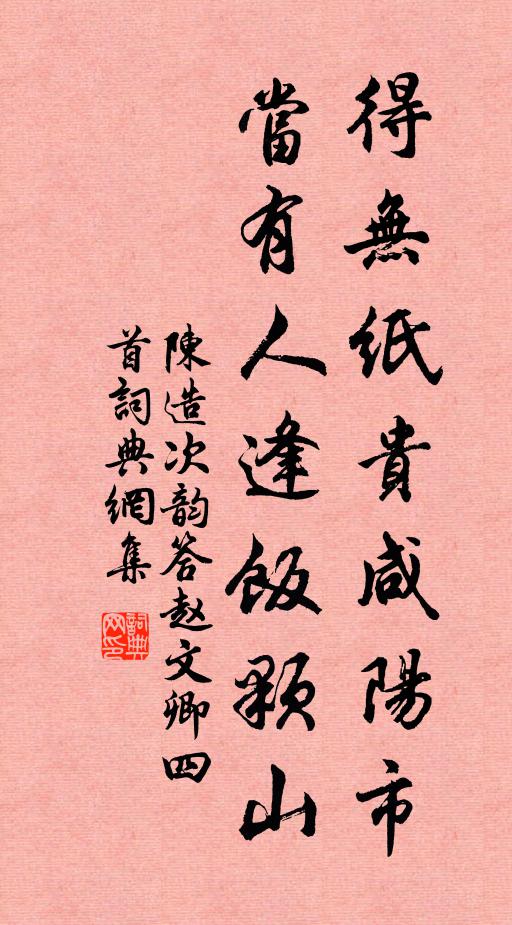 得無紙貴咸陽市
當有人逢飯顆山
陳造次韵答赵文卿四
首詞典網集
詞典
网印